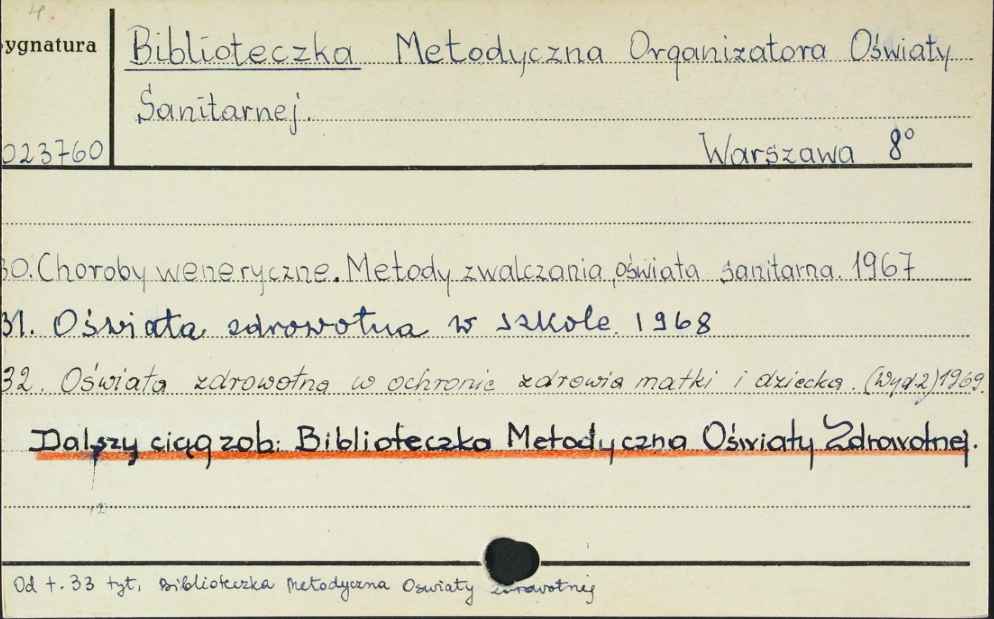 4.
ygnatura
Biblioteczka Metodyczna Organizatora Oświaty
Sanitarnej.
023760
Warszawa 8°
30. Choroby weneryczne. Metody zwalczania, oświata sanitarna. 1967
31. Oświata zdrowotna w szkole. 1968
32. Oświata zdrowotna w ochronie zdrowia matki i dziecka. (Wyd 2) 1969.
Dalszy ciąg zob: Biblioteczka Metodyczna Oświaty Zdrowotnej.
Od t. 33 tyt. Biblioteczka Metodyczna Oświaty Zdrowotnej